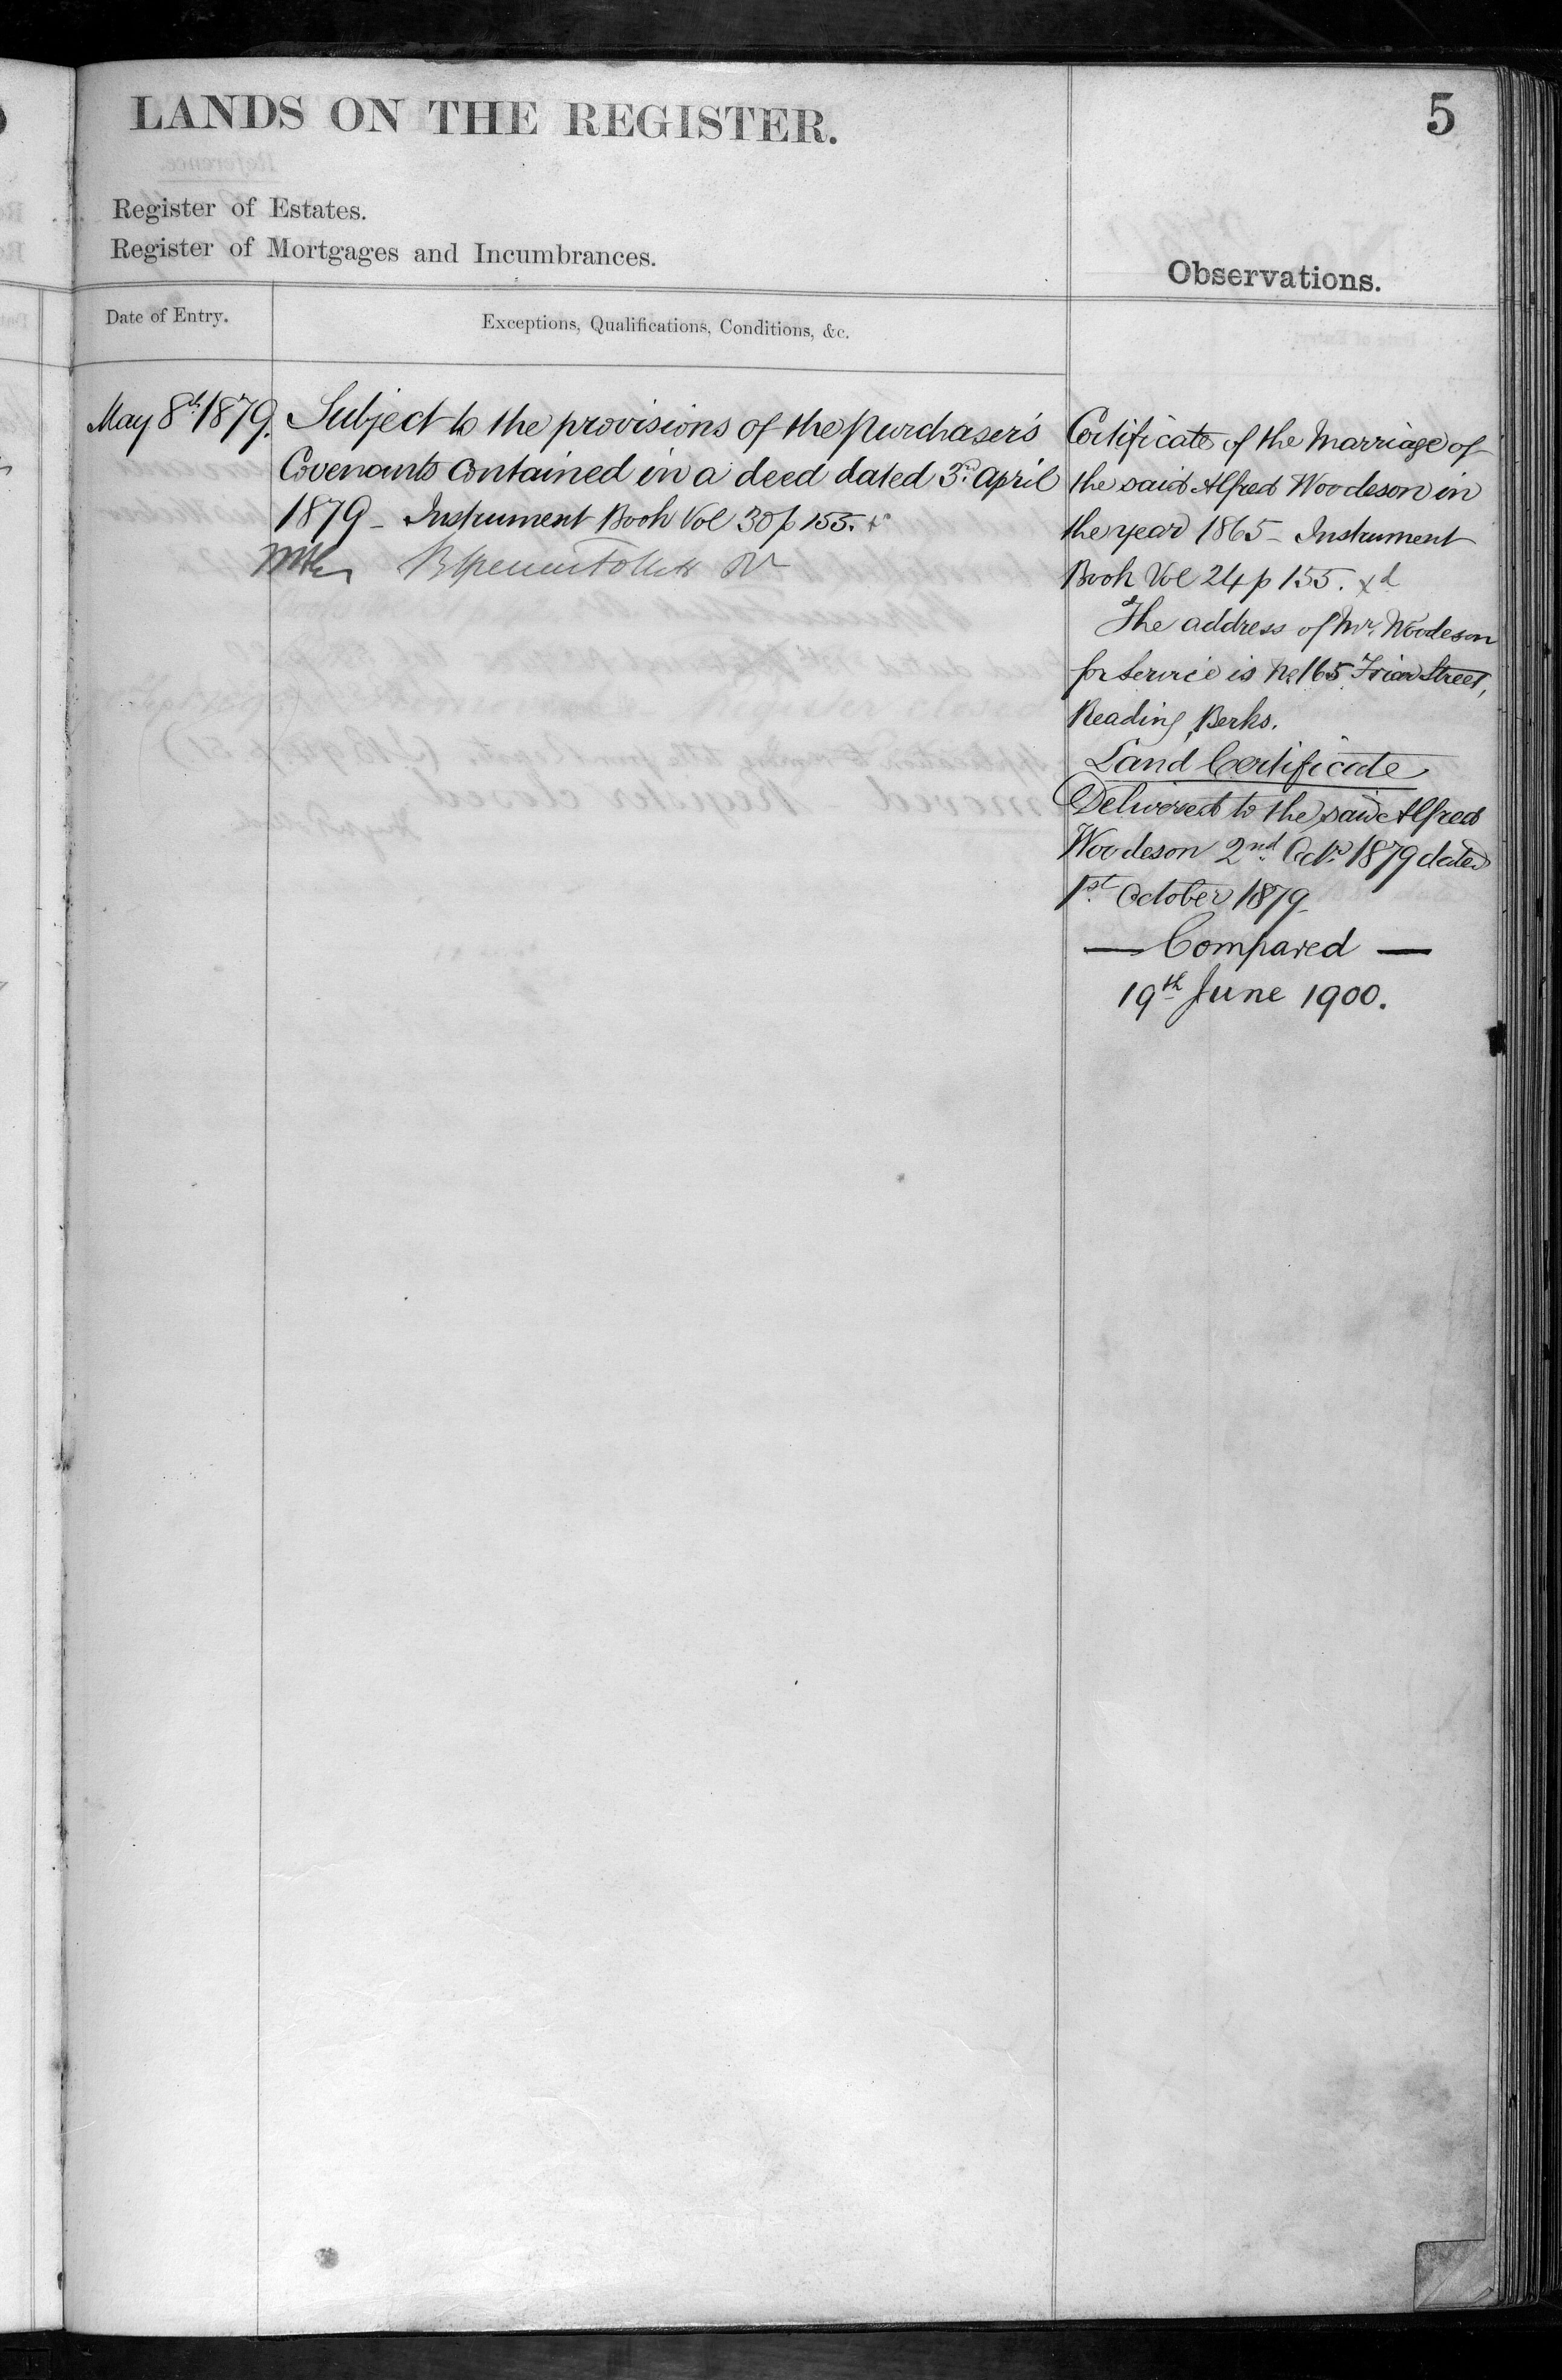 LANDS ON THE REGISTER.
5
Register of Estates.
Register of Mortgages and Incumbrances.
Observations.
Date of Entry.
Exceptions, Qualifications, Conditions, &c.
May 8th 1879. Subject to the provisions of the purchaser's
Covenants contained in a deed dated 3rd April
1879 - Instrument Book Vol 30 p 155.
Certificate of the Marriage of
the said Alfred Woodeson in
the year 1865 - Instrument
Book Vol 24 p 155.
The address of Mr. Woodeson
for Service is No 165 Friar Street,
Reading, Berks.
Land Certificate
Delivered to the said Alfred
Woodeson 2nd Octr 1879 dated
1st October 1879
— Compared —
19th June 1900.